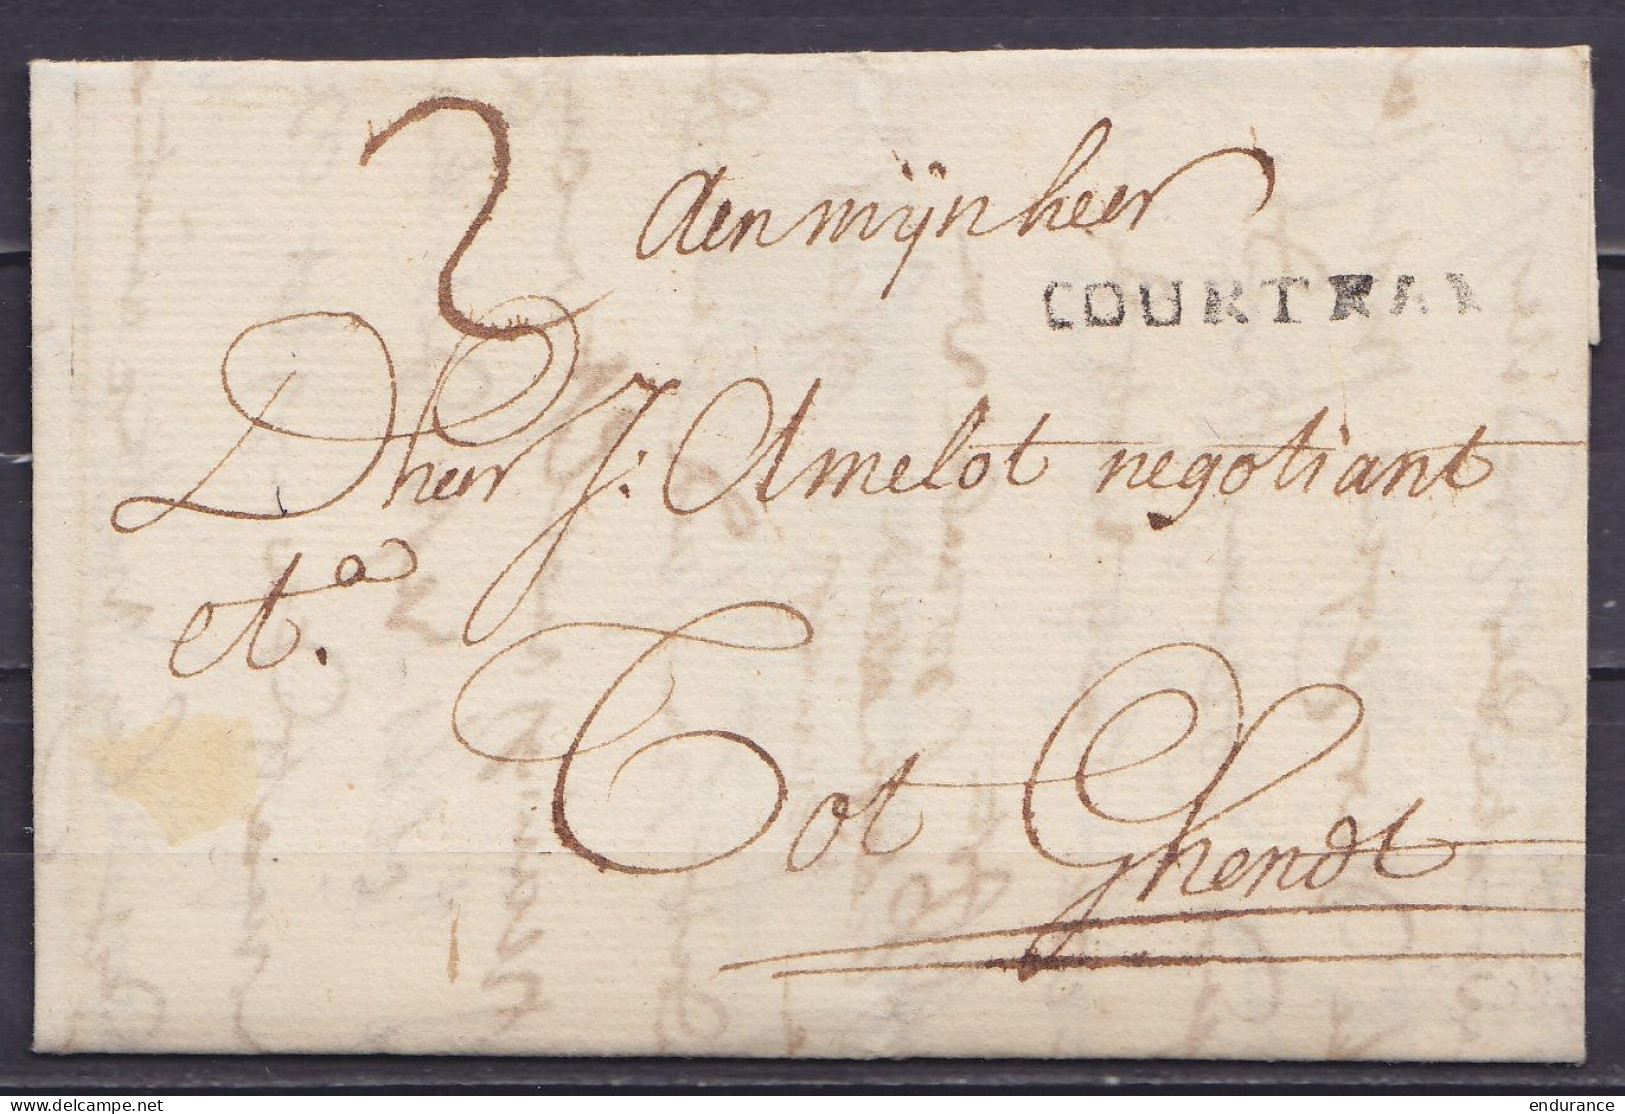 2
Aen mijn heer
COURTRAI
D'heer J: Amelot negotiant
et.a
Tot Ghendt
delcampe.net
endurance